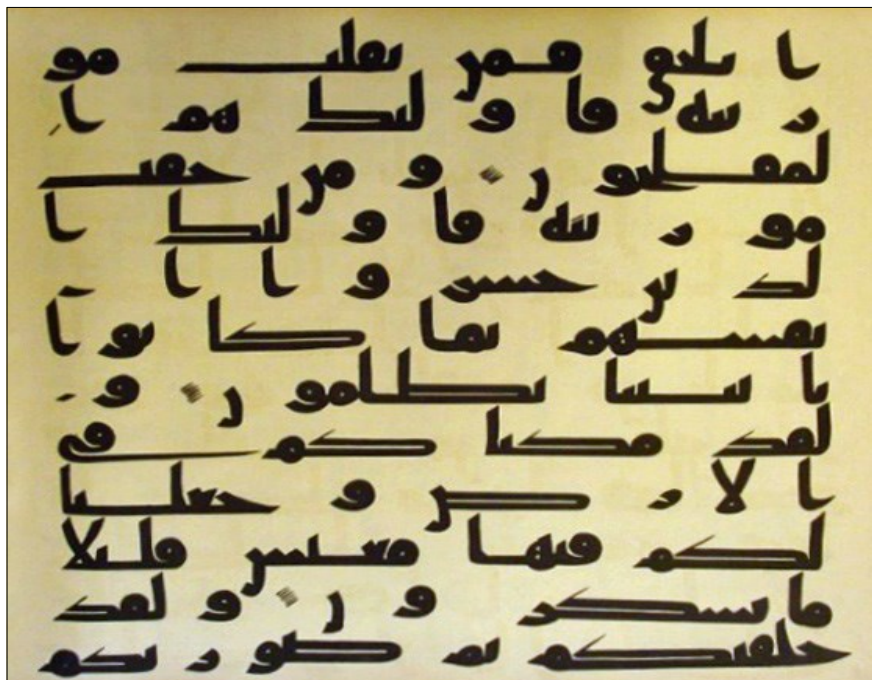 الحق فمن ثقلت مو
زينه فاولئك هم ا
لمفلحون ومن خفت
موزينه فاولئك ا
لذين خسروا ا
نفسهم بما كانوا
بايتنا يظلمون و
لقد مكنا كم في
الارض وجعلنا
لكم فيها معيش قليلا
ما تشكرون ولقد
خلقنكم ثم صورنكم